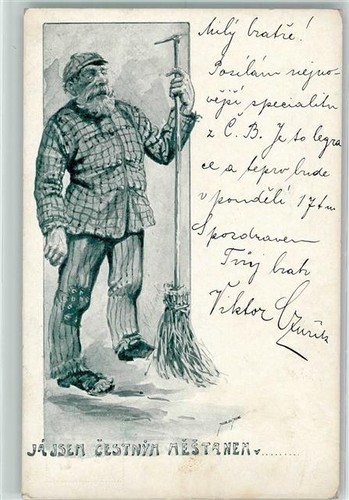 Milý bratře!
Posílám nejno-
vější specialitu
z Č.B. Je to legra
ce a teprv bude
v pondělí 17 t.m.
S pozdravem
Tvůj bratr
Viktor
JÁ JSEM ČESTNÝM MĚŠŤANEM v..........